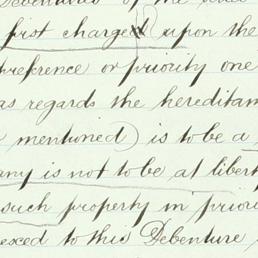 Debentures of the
first charged upon the
preference or priority one
as regards the hereditam
mentioned) is to be a
any is not to be at libert
such property in prior
exed to this Debenture